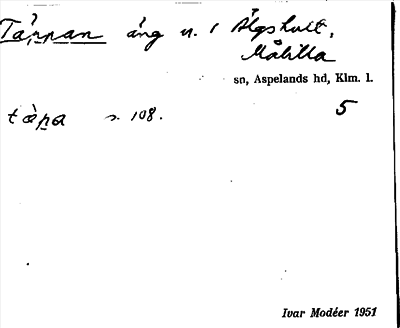 Täppan äng n. 1 Älgshult,
Målilla
sn, Aspelands hd, Klm. l.
5
tàpa s. 108.
Ivar Modéer 1951